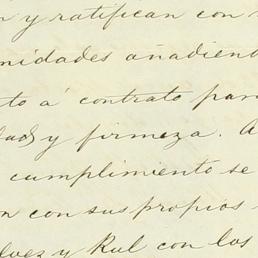 n y ratifican con
nidades añadiend
to á contrato para
dad y firmeza. A
cumplimiento se
n con sus propios
lvez y Rul con los